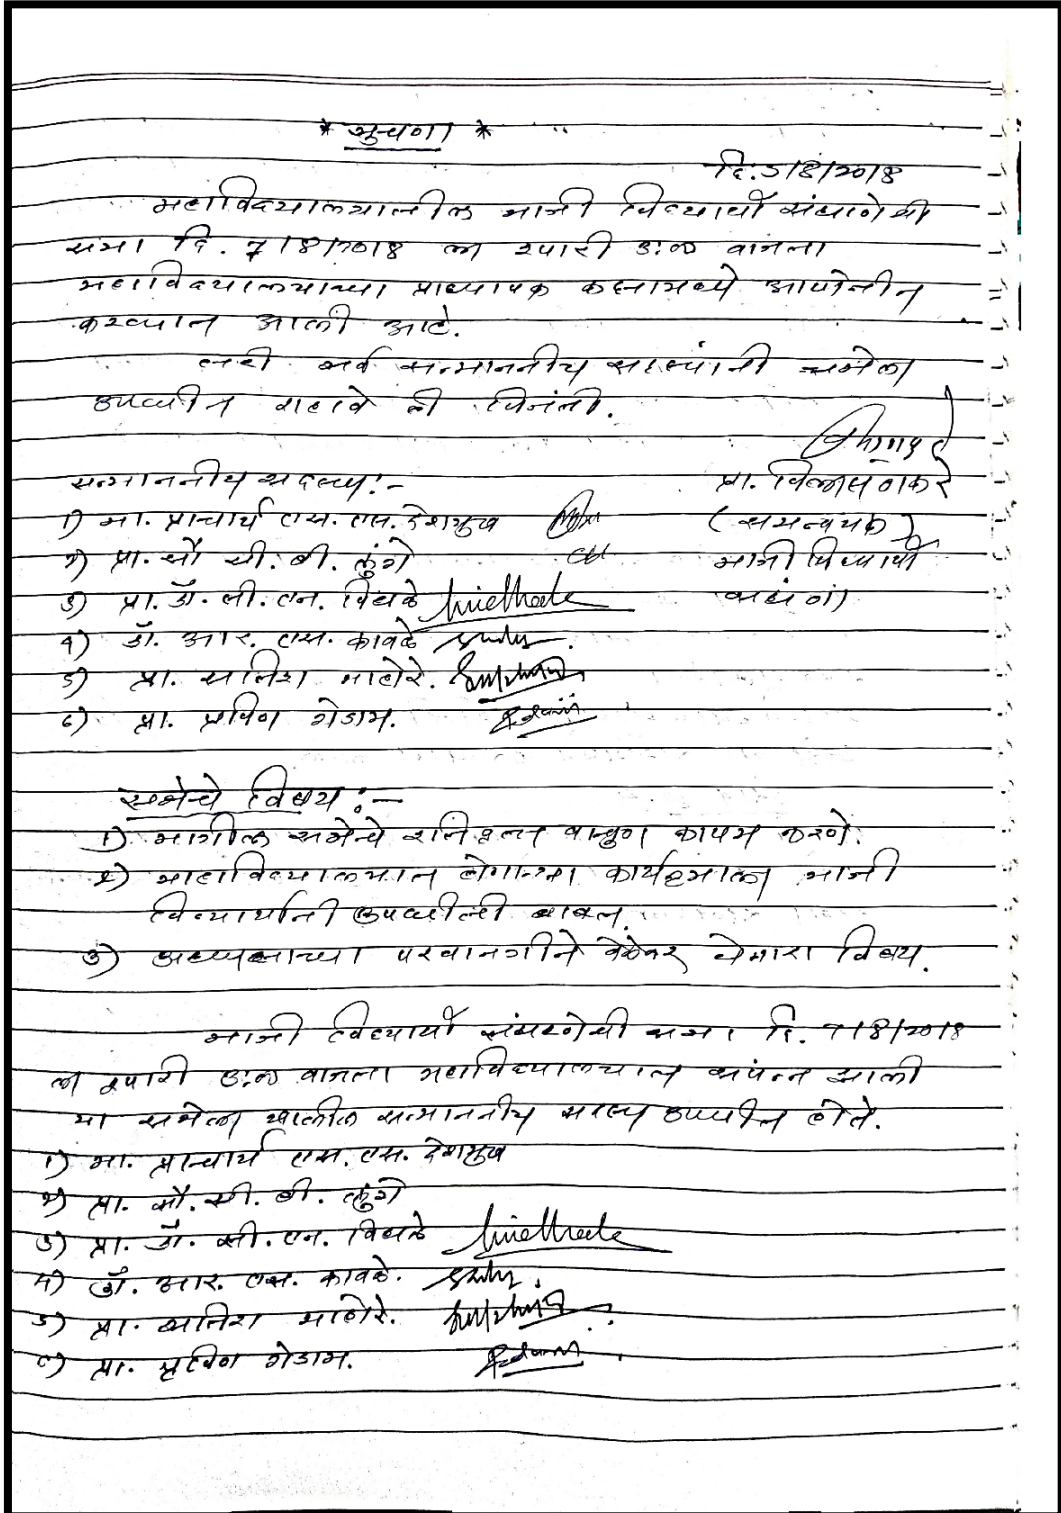 * सुचना *
दि. 5/8/2018
महाविद्यालयातील माजी विद्यार्थी संघाणेची
सभा दि. 7/8/2018 ला दुपारी 3:00 वाजता
महाविद्यालयाच्या प्राध्यापक कक्षामध्ये आयोजीत
करण्यात आली आहे.
तरी सर्व सन्माननीय सदस्यांनी सभेला
उपस्थीत राहावे ही विनंती.
सन्माननीय सदस्य :- प्रा. विलास ठाकरे
१) मा. प्राचार्य एस. एस. देशमुख (समन्वयक)
२) प्रा. सौ सी. बी. लुंगे माजी विद्यार्थी
३) प्रा. डॉ. सी. एन. विधळे
४) डॉ. आर. एस. कावळे
५) प्रा. सतिश माहोरे.
६) प्रा. प्रविण गेडाम.
सभेचे विषय :-
१) मागील सभेचे इतिवृत्त वाचुण कायम करणे.
२) माहाविद्यालयात होणाऱ्या कार्यक्रमाला माजी
विद्यार्थ्यांनी उपस्थीती बाबत.
३) अध्यक्षाच्या परवानगीने वेळेवर येणारा विषय.
माजी विद्यार्थी संघटणेची सभा दि. 7/8/2018
ला दुपारी 3:00 वाजता महाविद्यालयात संपन्न झाली
या सभेला खालील सन्माननीय सदस्य उपस्थीत होते.
१) मा. प्राचार्य एस. एस. देशमुख
२) प्रा. सौ. सी. बी. लुंगे
३) प्रा. डॉ. सी. एन. विधळे
४) डॉ. आर. एस. कावळे.
५) प्रा. सतिश माहोरे.
६) प्रा. प्रविण गेडाम.